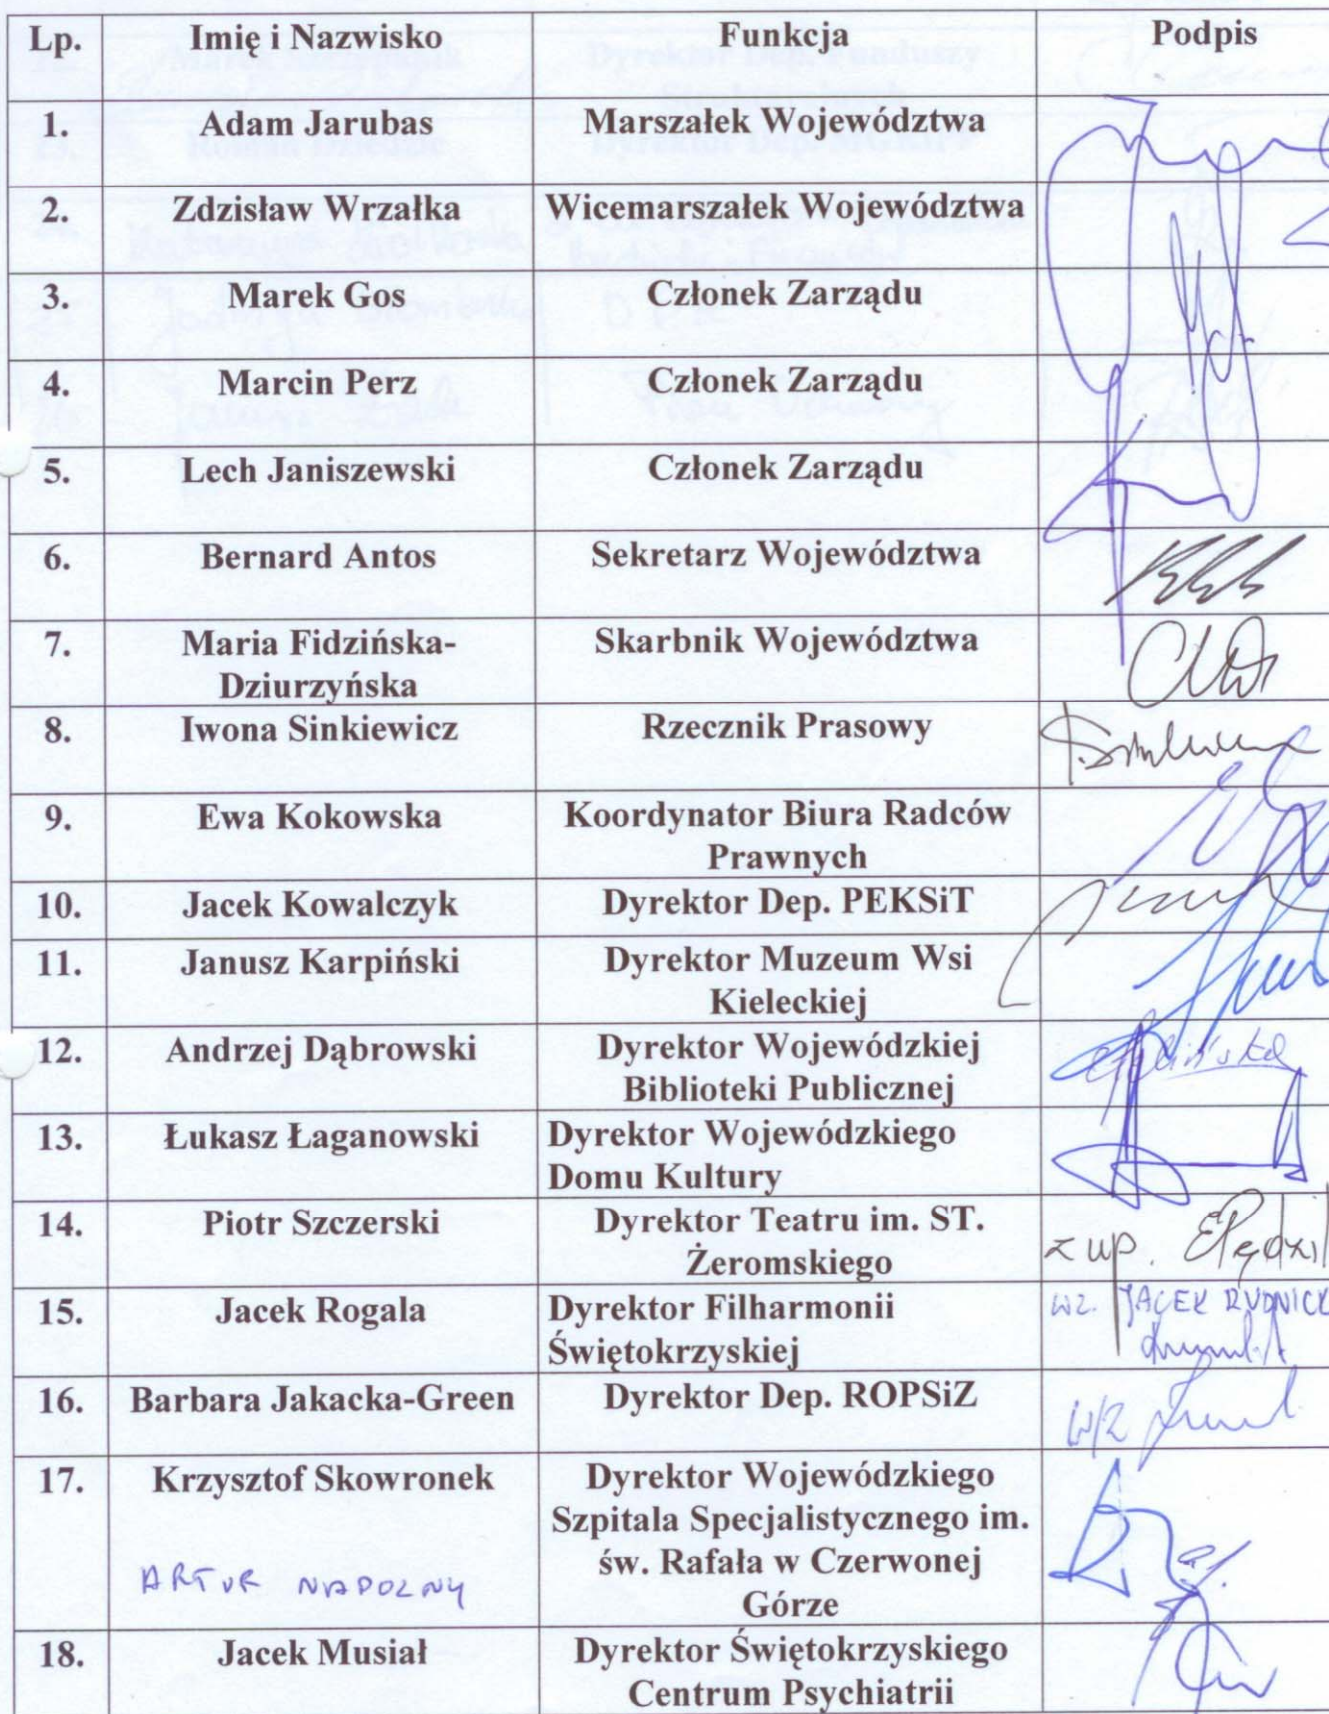 Lp. Imię i Nazwisko Funkcja Podpis
1. Adam Jarubas Marszałek Województwa
2. Zdzisław Wrzałka Wicemarszałek Województwa
3. Marek Gos Członek Zarządu
4. Marcin Perz Członek Zarządu
5. Lech Janiszewski Członek Zarządu
6. Bernard Antos Sekretarz Województwa
7. Maria Fidzińska- Skarbnik Województwa
Dziurzyńska
8. Iwona Sinkiewicz Rzecznik Prasowy
9. Ewa Kokowska Koordynator Biura Radców
Prawnych
10. Jacek Kowalczyk Dyrektor Dep. PEKSiT
11. Janusz Karpiński Dyrektor Muzeum Wsi
Kieleckiej
12. Andrzej Dąbrowski Dyrektor Wojewódzkiej
Biblioteki Publicznej
13. Łukasz Łaganowski Dyrektor Wojewódzkiego
Domu Kultury
14. Piotr Szczerski Dyrektor Teatru im. ST. z up.
Żeromskiego
15. Jacek Rogala Dyrektor Filharmonii wz. JACEK RUDNICK
Świętokrzyskiej
16. Barbara Jakacka-Green Dyrektor Dep. ROPSiZ w/z
17. Krzysztof Skowronek Dyrektor Wojewódzkiego
Szpitala Specjalistycznego im.
ARTUR NAPOLNY św. Rafała w Czerwonej
Górze
18. Jacek Musiał Dyrektor Świętokrzyskiego
Centrum Psychiatrii